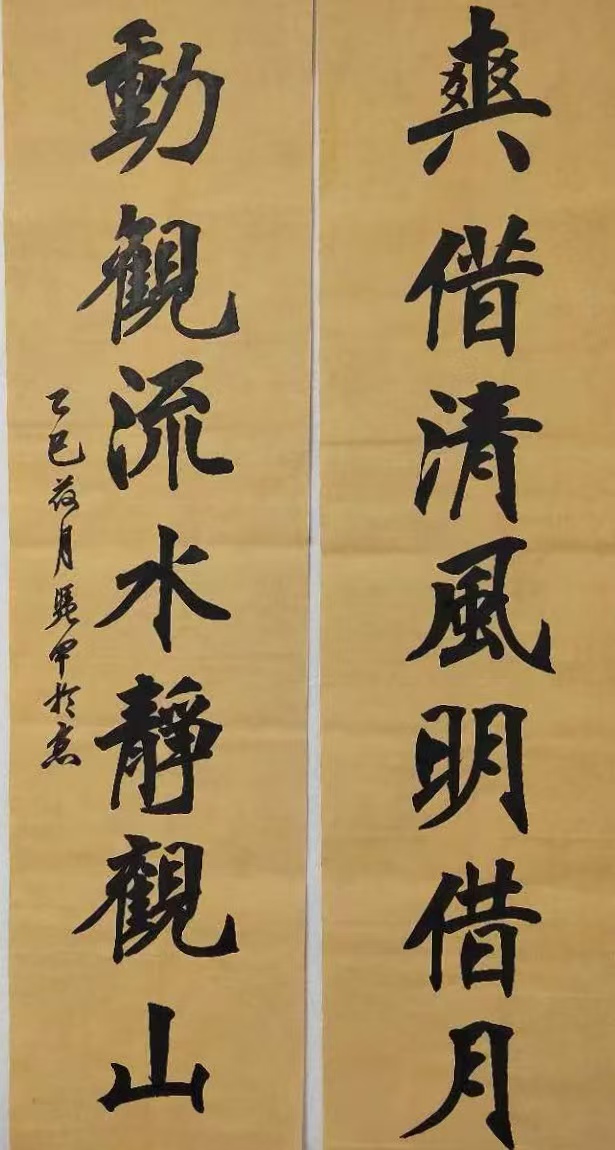 爽借清風明借月
動觀流水靜觀山
乙巳荷月